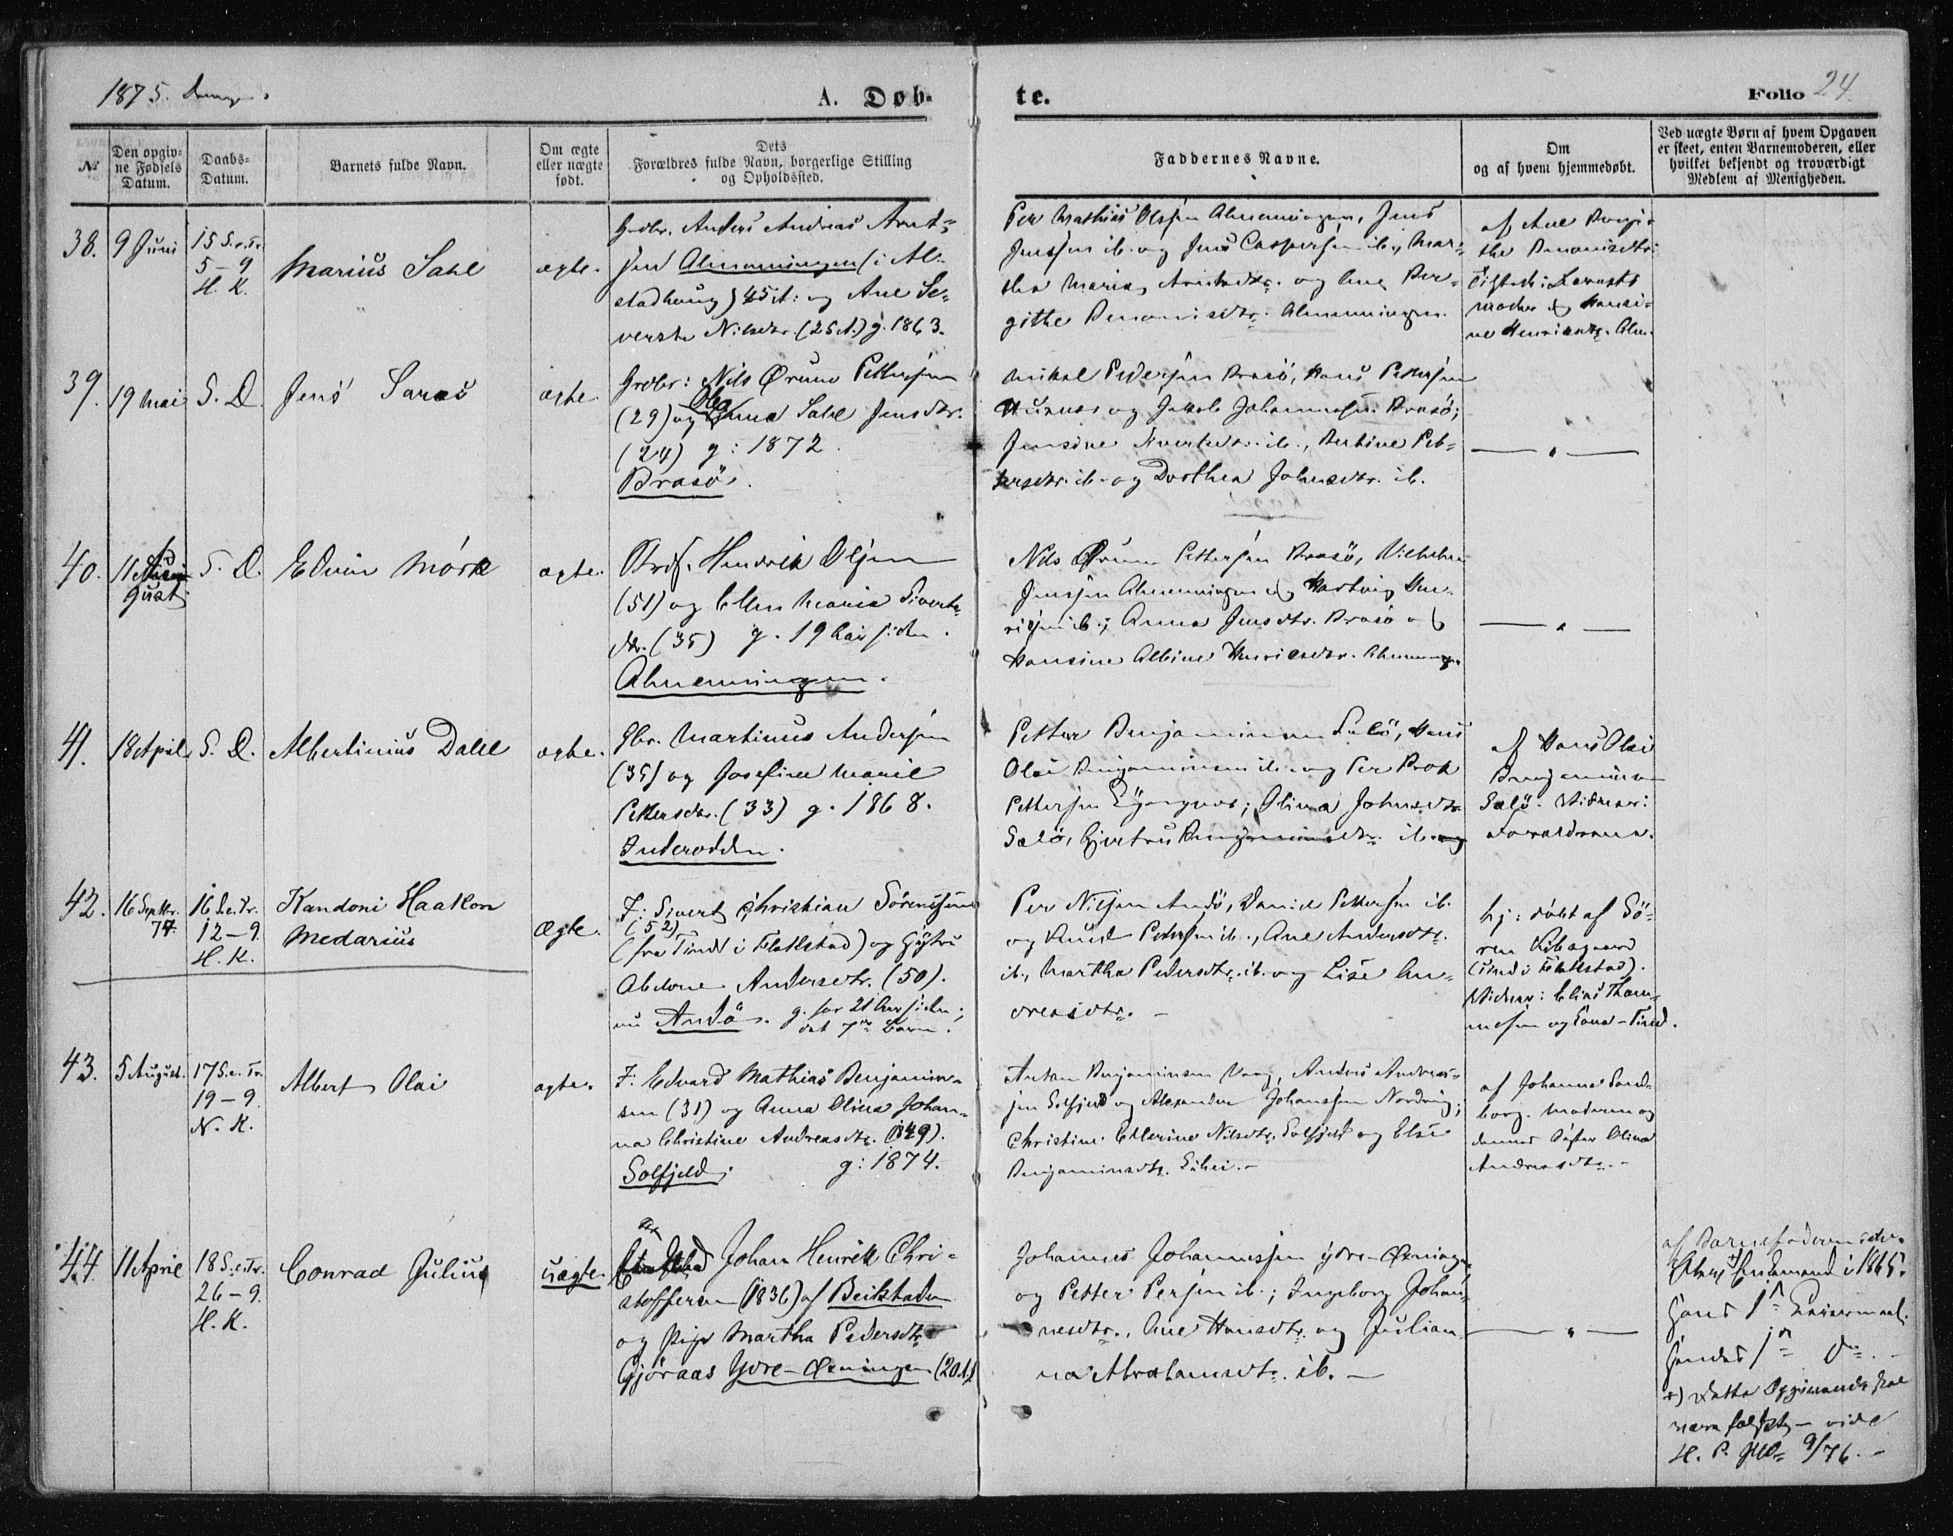 1875.
A. Døb-
te.
Folio 24.
№
Den opgiv-
ne Fødsels
Datum.
Daabs-
Datum.
Barnets fulde Navn.
Om ægte
eller uægte
født.
Dets
Forældres fulde Navn, borgerlige Stilling
og Opholdssted.
Faddernes Navne.
Om
og af hvem hjemmedøbt.
Ved uægte Børn af hvem Opgaven
er skeet, enten Barnemoderen, eller
hvilket bekjendt og troværdigt
Medlem af Menigheden.
38.
9 Juni
15 S. e. Tr.
5-9
H. K.
Marius Sahl
ægte.
Anders Andreas Arnt-
sen Almenningen (i Al-
stadhoug) 45 A: og Ane Se-
verste Nilsdtr. (25 A.) g. 1863.
Per Mathias Olssen Almenningen, Jens
Jenssen ib. og Jens Caspersen ib., Mar-
tha Maria Arntsdtr. og Ane Ber-
githe Benonisdtr. Almenningen
af Ane Bergi-
the Benonisdtr:
Tilstede: Barnets
moder & Hansi-
ne Henriksdtr. Alm.
39.
19 Mai
S. D.
Jens Saras
ægte.
Grdbr: Nils Ørum Pettersen
(29) og Anna Sahl Jensdtr.
(24) g: 1872.
Brasø.
Mikal Pedersen Brasø, Hans Pettersen
og Jakob Johannessen Brasø;
Jensine Sivertsdtr. ib., Bertine Pet-
tersdtr. ib. og Dorthea Johnsdtr. ib.
— " —
40.
11 August
S. D.
Edvin Mørk
ægte.
Hendrik Olsen
(51) og Ellen Maria Siverts-
dtr. (35) g. 19 Aar siden.
Almenningen.
Nils Ørum Pettersen Brasø, Vilhelm
Jenssen Almenningen & Hartvig Hen-
riksen ib.; Anna Jensdtr. Brasø &
Hansine Albine Henriksdtr. Almenningen
— " —
41.
18 April
S. D.
Albertinius Dahl
ægte.
Gbr. Martinus Andersen
(35) og Josefine Marie
Pettersdtr. (33) g. 1868.
Inderodden.
Petter Benjaminsen Salø, Hans
Olai Benjaminsen ib. og Per Brok
Pettersen; Olina Johnsdtr.
Salø, Gjertru Benjaminsdtr. ib. og
af Hans Olai
Benjaminsen
Salø. Vidner:
Forældrene.
42.
16 Septbr.
74.
16 S. e. Tr.
12-9.
H. K.
Kandoni Haakon
Medarius
Ægte.
F: Sivert Christian Sørenssen
(52)
(fra Tind i Flakstad) og Gjertru
Abelone Andersdtr. (50).
nu Andø. g. for 21 Aar siden;
det 7de Barn.
Per Nilsen Andø, Daniel Pettersen ib.
og Knud Pedersen ib., Ane Andersdtr.
ib., Martha Pedersdtr. ib. og Lise An-
dreasdtr. —
hj: døbt af Sø-
ren
(Tind i Flakstad).
Vidner: Elias Thom-
mesen og Kone - Tind.
43.
5 August.
17 S. e. Tr.
19-9.
N. K.
Albert Olai
ægte.
F. Edvard Mathias Benjamin-
sen (31) og Anna Olina Johan-
na Christine Andreasdtr. (1849).
Solfjeld.
g: 1874.
Anton Benjaminsen Vaag, Anders Andreas-
sen Solfjeld og Alexander Johanssen Nordvig;
Christine Ellerine Nilsdtr. Solfjeld og Else
Benjaminsdtr.
af Johanna Sand-
borg. Moderen og
dennes Søster Olina
Andreasdtr. —
44.
11 April
18 S. e. Tr.
26-9.
H. K.
Conrad Julius
uægte.
Johan Henrik Chri-
stoffersen (1836) af Beikstaden
og Pige Martha Pedersdtr
Gjøraas Ydre-Øxningen (20 A.)
Johannes Johannessen ydre-Øxningen
og Petter Persen ib.; Ingeborg Johan-
nesdtr., Ane Hansdtr. og Julian-
na Abrahamsdtr. ib. —
— " —
af Barnefaderen
Enkemand i 1865.
hans 1ste Leiermaal,
hendes 1ste do. —
*) Dette Opgivende skal
være falskt — vide
H. P. 9/76. —